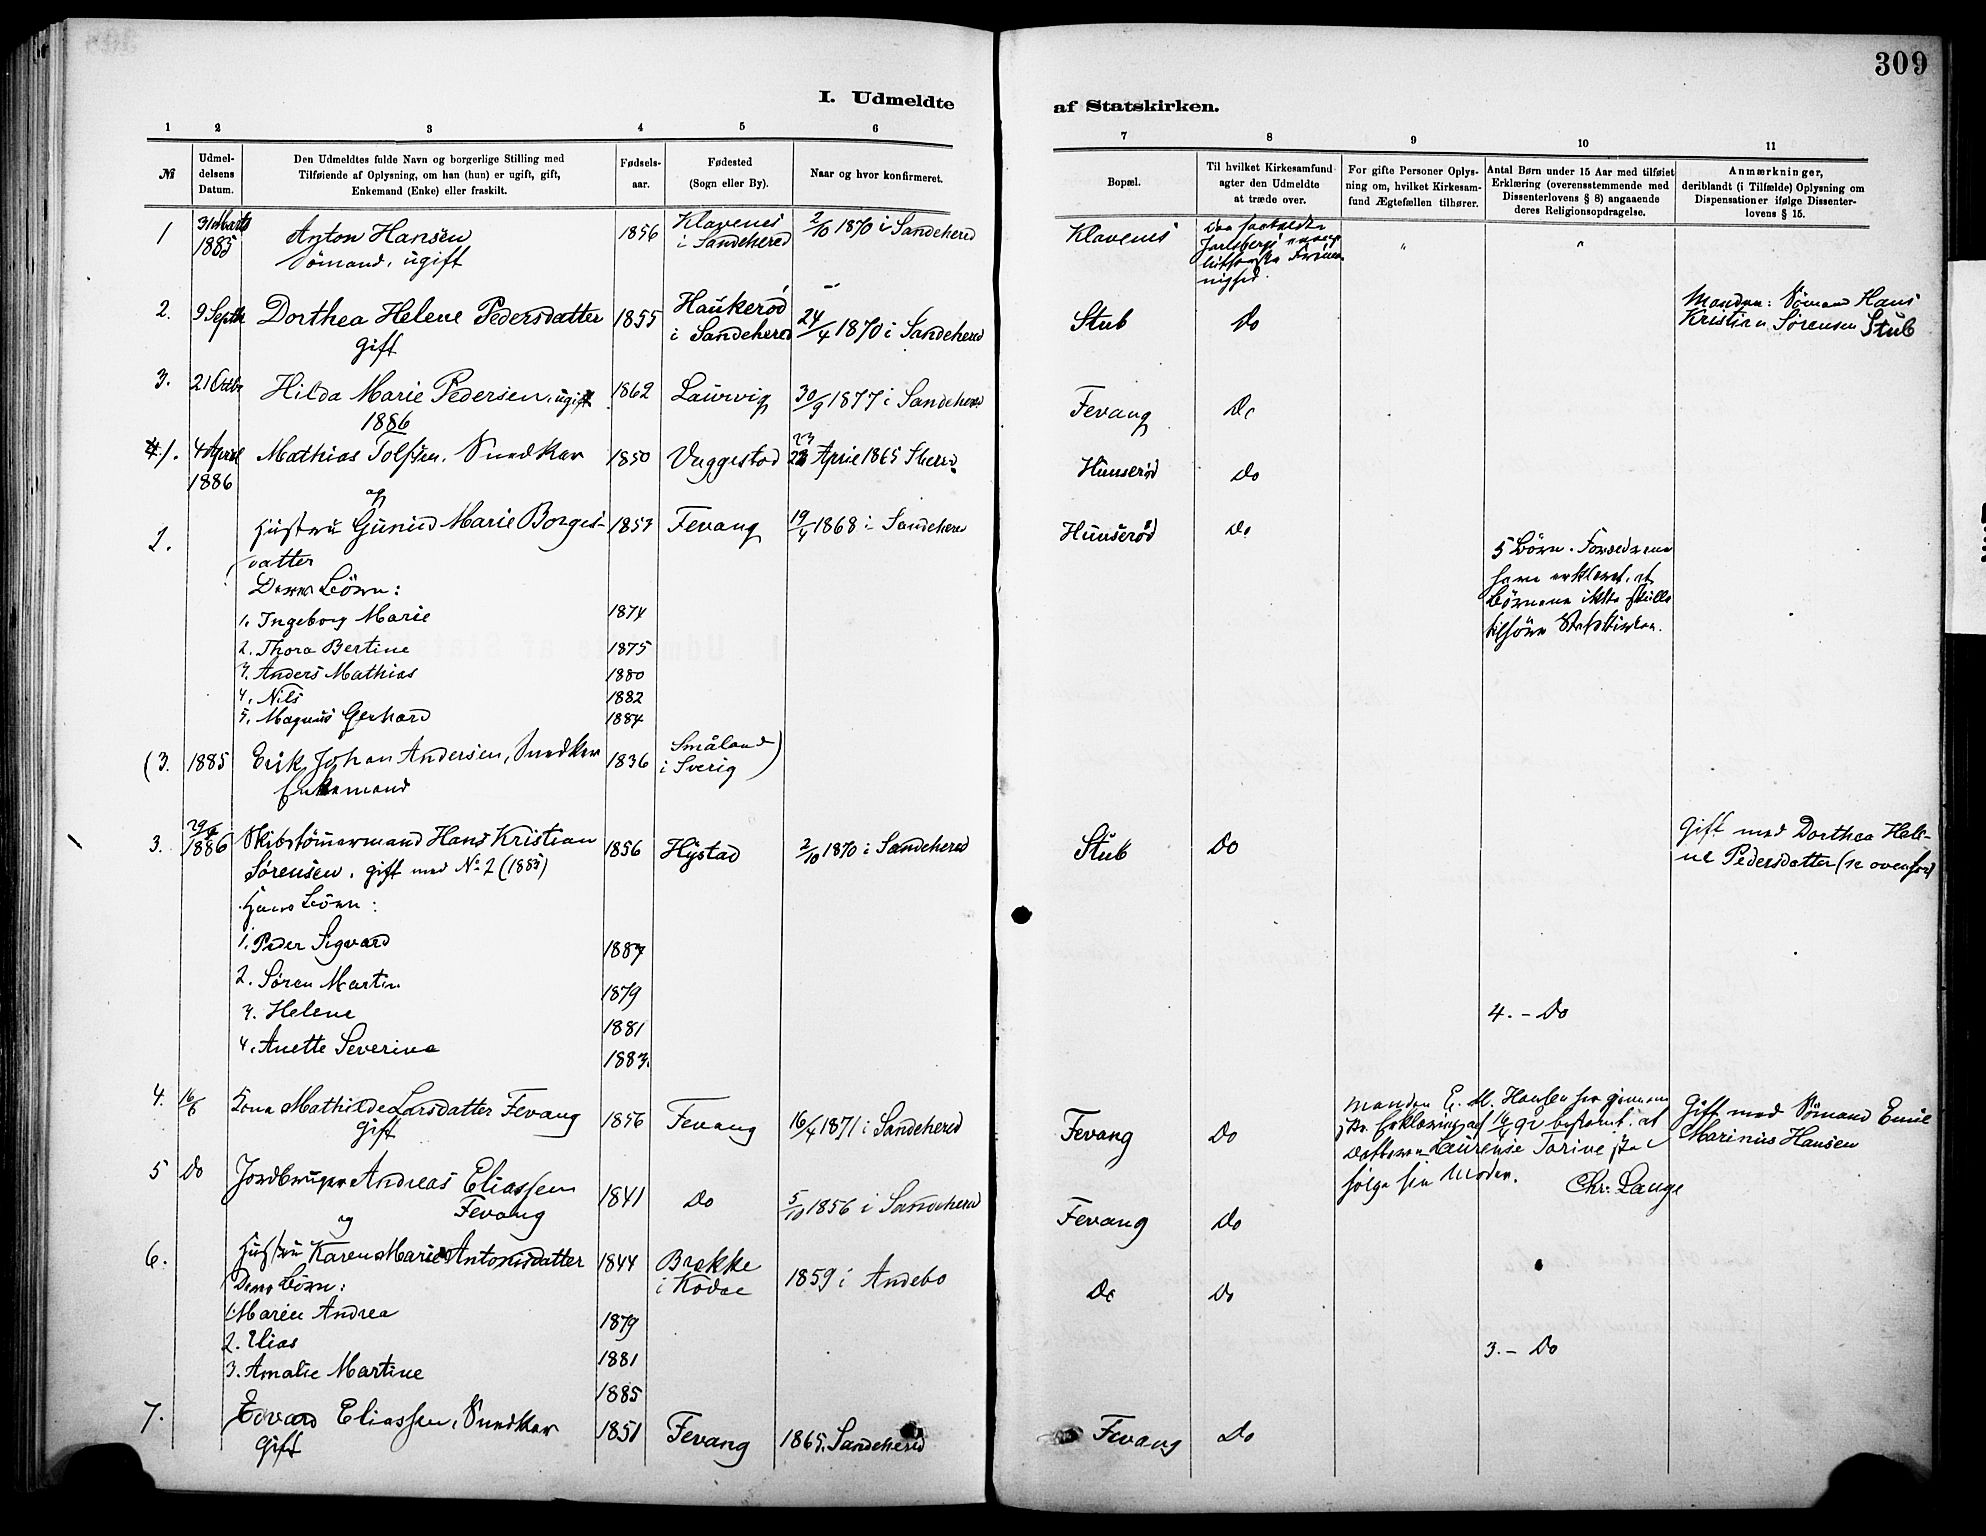 309
I. Udmeldte
af Statskirken.
1 2 3 4 5 6
7 8 9 10 11
№
Udmel-
delsens
Datum.
Den Udmeldtes fulde Navn og borgerlige Stilling med
Tilføiende af Oplysning, om han (hun) er ugift, gift,
Enkemand (Enke) eller fraskilt.
Fødsels-
aar.
Fødested
(Sogn eller By).
Naar og hvor konfirmeret.
Bopæl.
Til hvilket Kirkesamfund
agter den Udmeldte
at træde over.
For gifte Personer Oplys-
ning om, hvilket Kirkesam-
fund Ægtefællen tilhører.
Antal Børn under 15 Aar med tilføiet
Erklæring (overensstemmende med
Dissenterlovens § 8) angaaende
deres Religionsopdragelse.
Anmærkninger,
deriblandt (i Tilfælde) Oplysning om
Dispensationer ifølge Dissenter-
lovens § 15.
1 31 Marts Anton Hansen 1856 Klavenes 2/10 1870 i Sandeherred Klavenes
1885 Sømand, ugift i Sandeherred
Jarlsbergs
2. 9 Septbr Dorthea Helene Pedersdatter 1855 Haukerød 24/4 1870 i Sandeherred Stub Do Manden: Sømand Hans
gift i Sandeherred Kristian Sørensen Stub
3. 21 Octbr Hilda Marie Pedersen, ugift 1862 Laurvig 30/9 1877 i Sandeherred Fevang Do
1886
1. 4 April Mathias Tolfsen, Snedker 1850 Vaggestad 23 April 1865 Hunserød Do
1886
og
2. Hustru Gunild Marie Borges- 1851 Fevang 19/4 1868 i Sandeherred Hunserød Do
datter
Deres Børn:
5 Børn. Forældrene
have erklæret, at
Børnene ikke skulle
tilhøre Statskirken.
1. Ingeborg Marie 1874
2. Thora Bertine 1875
3. Anders Mathias 1880
4. Nils 1882
5. Magnus Gerhard 1884
(3. 1885 Erik Johan Andersen, Snedker 1836 Småland
Enkemand i Sverig)
3. 29/4 1886 Skibstømmermand Hans Kristian 1856 Hystad 2/10 1870 i Sandeherred Stub Do Gift med Dorthea Hele-
Sørensen, gift med No 2 (1885) ne Pedersdatter (se ovenfor)
Hans Børn:
1. Peder Sigvard 1887
2. Søren Martin 1879
3. Helene 1881 4. – Do
4. Anette Severine 1883.
4. 16/6 Mathilde Larsdatter Fevang 1856 Fevang 16/4 1871 i Sandeherred Fevang Do Gift med Sømand Emil
gift Marinius Hansen
Manden E. M. Hansen har gjennem
skr. Erklæring af 16/6 92 bestemt, at
Datteren Laurense Torine ska
følge sin Moder. Chr. Lange
5 Do Jordbruger Andreas Eliassen 1841 Do 5/10 1856 i Sandeherred Fevang Do
Fevang
og
6. Hustru Karen Marie Antonisdatter 1844 Brekke 1859 i Andebo Do Do
Deres Børn: i Kodal
1. Maren Andrea 1879
2. Elias 1881 3. – Do
3. Amalie Martine 1885
7. Edvard Eliassen, Snedker 1851 Fevang 1865. Sandeherred Fevang Do
gift